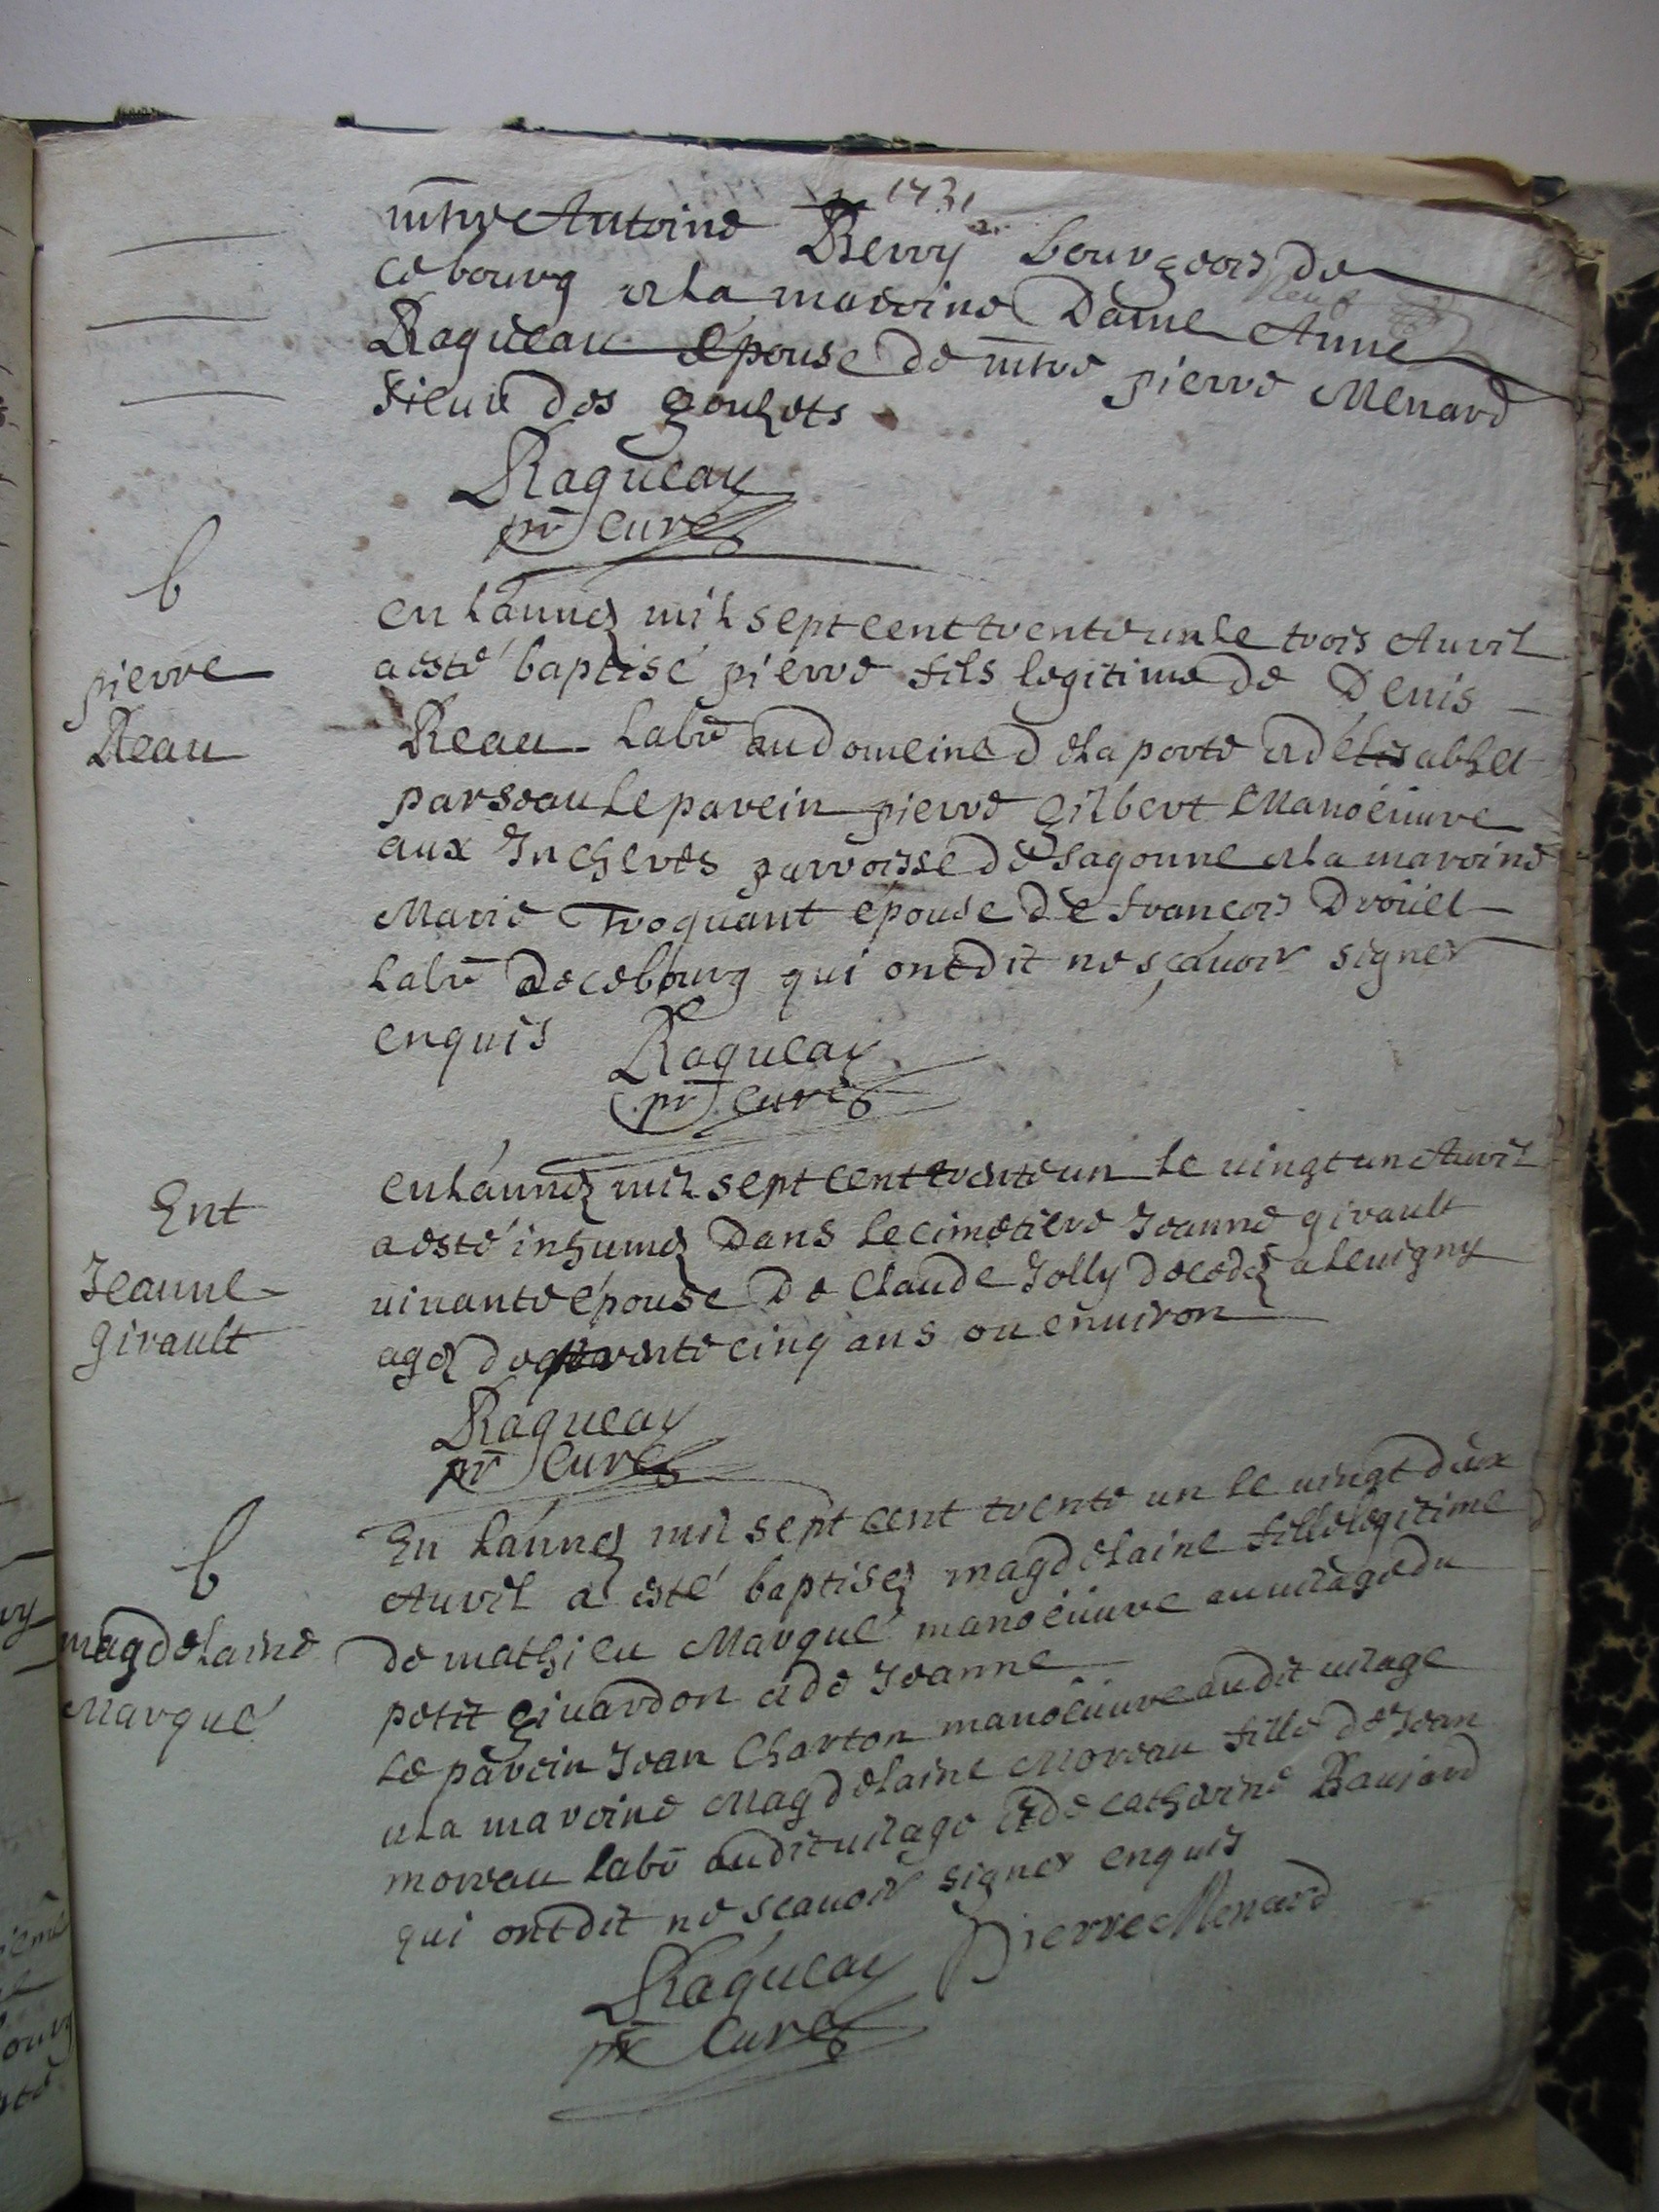 1731
mtre Antoine Berry bourgeois de
ce bourg et la maroine Dame Anne
Ragueau épouse de mtre pierre Menard
sieur des gouhets
Ragueau
pr curé
b
pierre
Reau
en l'année mil sept cent trente un le trois Auvril
a esté baptisé pierre fils legitime de Denis
Reau labr au domeine de la porte et d'élisabhet
parseau le parein pierre gilbert Manoeuuvre
aux Incheres parroisse de Sagonne et la maroine
Marie Troquant épouse de francois Droüet
labr de ce bourg qui ont dit ne sçauoir signer
enquis
Ragueau
pr curé
Ent
Jeanne
girault
en l'année mil sept cent trente un le uingt un Auvril
a esté inhumée Dans le cimetiere Jeanne girault
uiuante épouse De Claude Jolly decedée a leuigny
agée de cinq ans ou enuiron
Ragueau
pr curé
b
magdelaine
Marqué
En l'année mil sept cent trente un le uingt deux
Auvril a esté baptisée magdelaine fille legitime
de mathieu Marqué manoeuuvre au uilage du
petit giuardon et de Jeanne
le parein Jean Charton manoeuuvre audit uilage
et la maroine Magdelaine Moreau fille de Jean
moreau labr audit uilage et de catherine Baujard
qui ont dit ne scauoir signer enquis
Pierre Menard
Ragueau
pr Curé